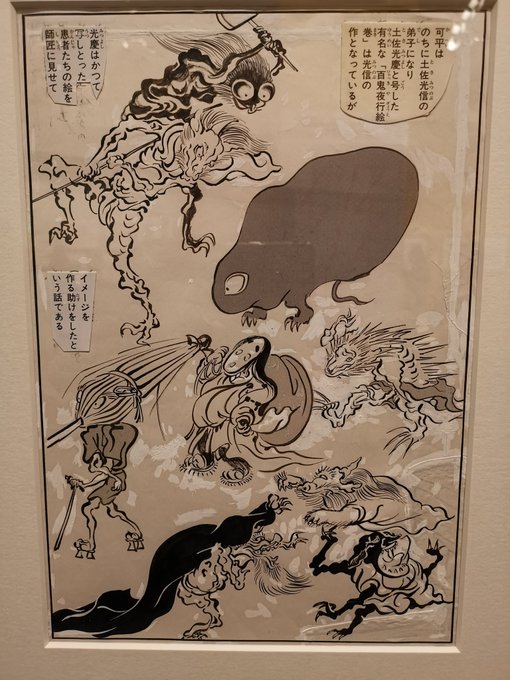 可平は
のちに土佐光信の
弟子になり
土佐光慶と号した
有名な「百鬼夜行絵
巻」は光信の
作となっているが
光慶はかつて
写しとった
患者たちの絵を
師匠に見せて
イメージを
作る助けをしたと
いう話である